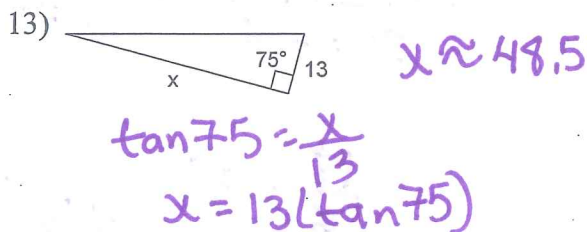 13)
75°
13
x
x ≈ 48.5
tan75 = x/13
x = 13(tan75)